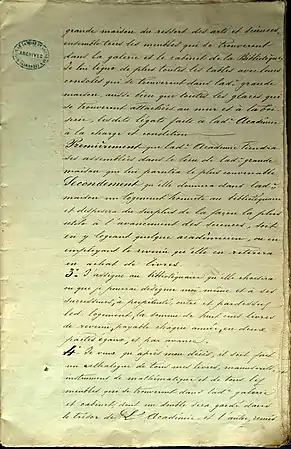 grande maison du ressort des arts et siences,
ensemble tous les meubles qui se trouveront
dans la galerie et le cabinet de la Bibliotèque.
Je lui lègue de plus toutes les tables avec leurs
consoles qui se trouveront dans lad. grande
maison, aussi bien que toutes les glaces qui
se trouveront attachées au mur et à la
lesdits legats faits à lad. Académie
à la charge et condition
Premièrement que lad. Académie tiendra
ses assemblées dans le lieu de lad. grande
maison qui lui paraîtra le plus convenable
Secondement qu'elle donnera dans lad.
maison un logement honnête au bibliotéquaire
et disposera du surplus de la façon la plus
utile à l'avancement des siences, soit
en y logeant quelque académicien, ou en
employant le revenu qu'elle en retirera
en achat de livres.
3.° J'assigne au bibliotéquaire qu'elle choisira
ou que je pourrai désigner moi même et à ses
successeurs, à perpétuité, outre et pardessus
led. logement, la somme de huit cens livres
de revenu, payable chaque année, en deux
parties égaux, et par avance.
4.° Je veux qu'après mon décès, il soit fait
un cathalogue de tous mes livres, manuscrits,
instrumens de mathématique et de tous les
meubles qui se trouveront dans lad. galerie
et cabinet, dont un double sera gardé dans
le trésor de L'Académie, et l'autre, remis
ARCHIVES